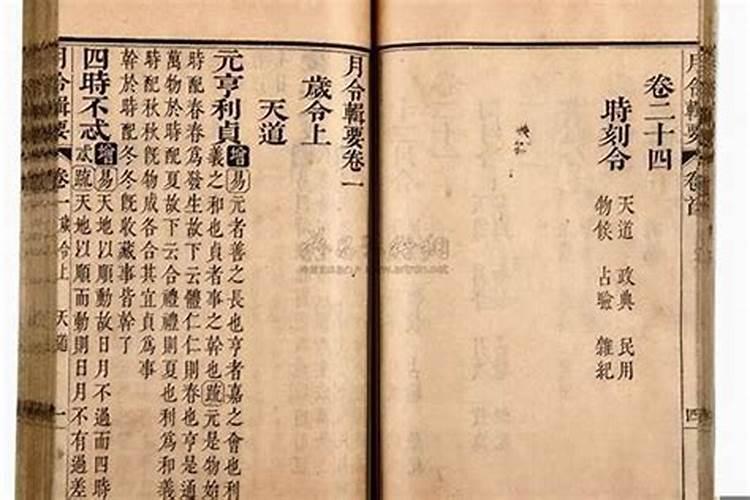 月令輯要 卷首
卷二十四
時刻令
天道 政典 民用
物候 占驗 雜紀
四
月令輯要卷一
歲令上
天道
元亨利貞 增 易 元者善之長也亨者嘉之會也利
義之和也貞者事之幹也 疏 元是物始
時配春春為發生故下云體仁仁則春也亨是通
萬物於時配夏故下云合禮禮則夏也利為和義
時配秋秋既物成各合其宜貞為事
幹於時配冬冬既收藏事皆幹了
四時不忒 增 易 天地以順動故日月不過而四時
忒 疏 天地以順而動則日月不有過差
月令輯要 卷一 歲令上 天道 一